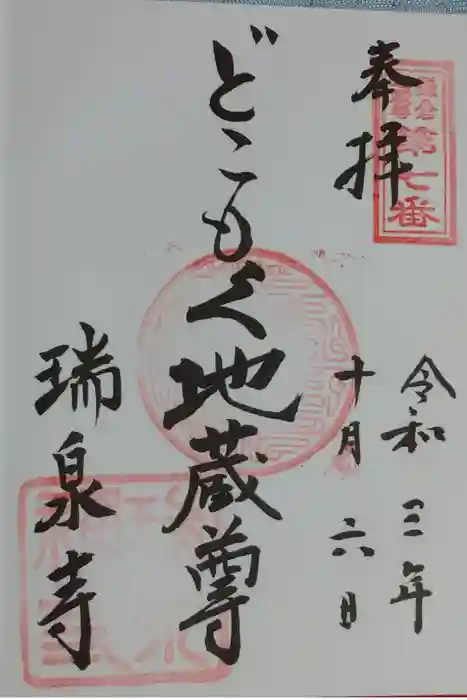 奉拝
第七番
令和三年
十月六日
どこもく地蔵尊
瑞泉寺